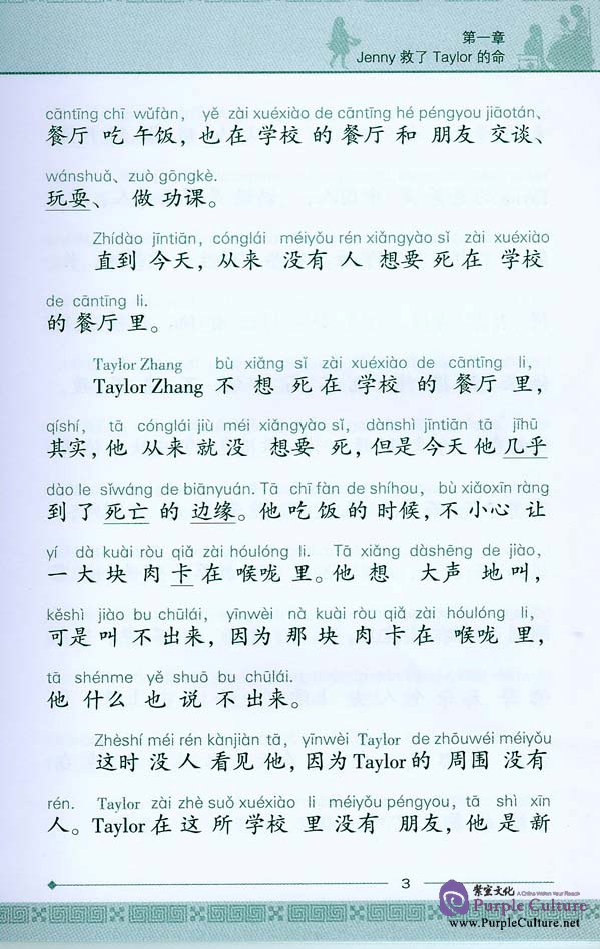 第一章
Jenny 救了 Taylor 的命
cāntīng chī wǔfàn, yě zài xuéxiào de cāntīng hé péngyou jiāotán、
餐厅 吃 午饭，也 在 学校 的 餐厅 和 朋友 交谈、
wánshuǎ、zuò gōngkè.
玩耍、 做 功课。
Zhídào jīntiān, cónglái méiyǒu rén xiǎngyào sǐ zài xuéxiào
直到 今天，从来 没有 人 想要 死 在 学校
de cāntīng li.
的 餐厅 里。
Taylor Zhang bù xiǎng sǐ zài xuéxiào de cāntīng li,
Taylor Zhang 不 想 死 在 学校 的 餐厅 里，
qíshí, tā cónglái jiù méi xiǎngyào sǐ, dànshì jīntiān tā jīhū
其实，他 从来 就 没 想要 死，但是 今天 他 几乎
dào le sǐwáng de biānyuán. Tā chī fàn de shíhou, bù xiǎoxīn ràng
到 了 死亡 的 边缘。他 吃 饭 的 时候，不 小心 让
yí dà kuài ròu qiǎ zài hóulóng li. Tā xiǎng dàshēng de jiào,
一 大 块 肉 卡 在 喉咙 里。他 想 大声 地 叫，
kěshì jiào bu chūlái, yīnwèi nà kuài ròu qiǎ zài hóulóng li,
可是 叫 不 出来，因为 那 块 肉 卡 在 喉咙 里，
tā shénme yě shuō bu chūlái.
他 什么 也 说 不 出来。
Zhèshí méi rén kànjiàn tā, yīnwèi Taylor de zhōuwéi méiyǒu
这时 没 人 看见 他，因为 Taylor 的 周围 没有
rén. Taylor zài zhè suǒ xuéxiào li méiyǒu péngyou, tā shì xīn
人。Taylor 在 这 所 学校 里 没有 朋友，他 是 新
3
紫宝文化 A China Within Your Reach
Purple Culture
www.PurpleCulture.net